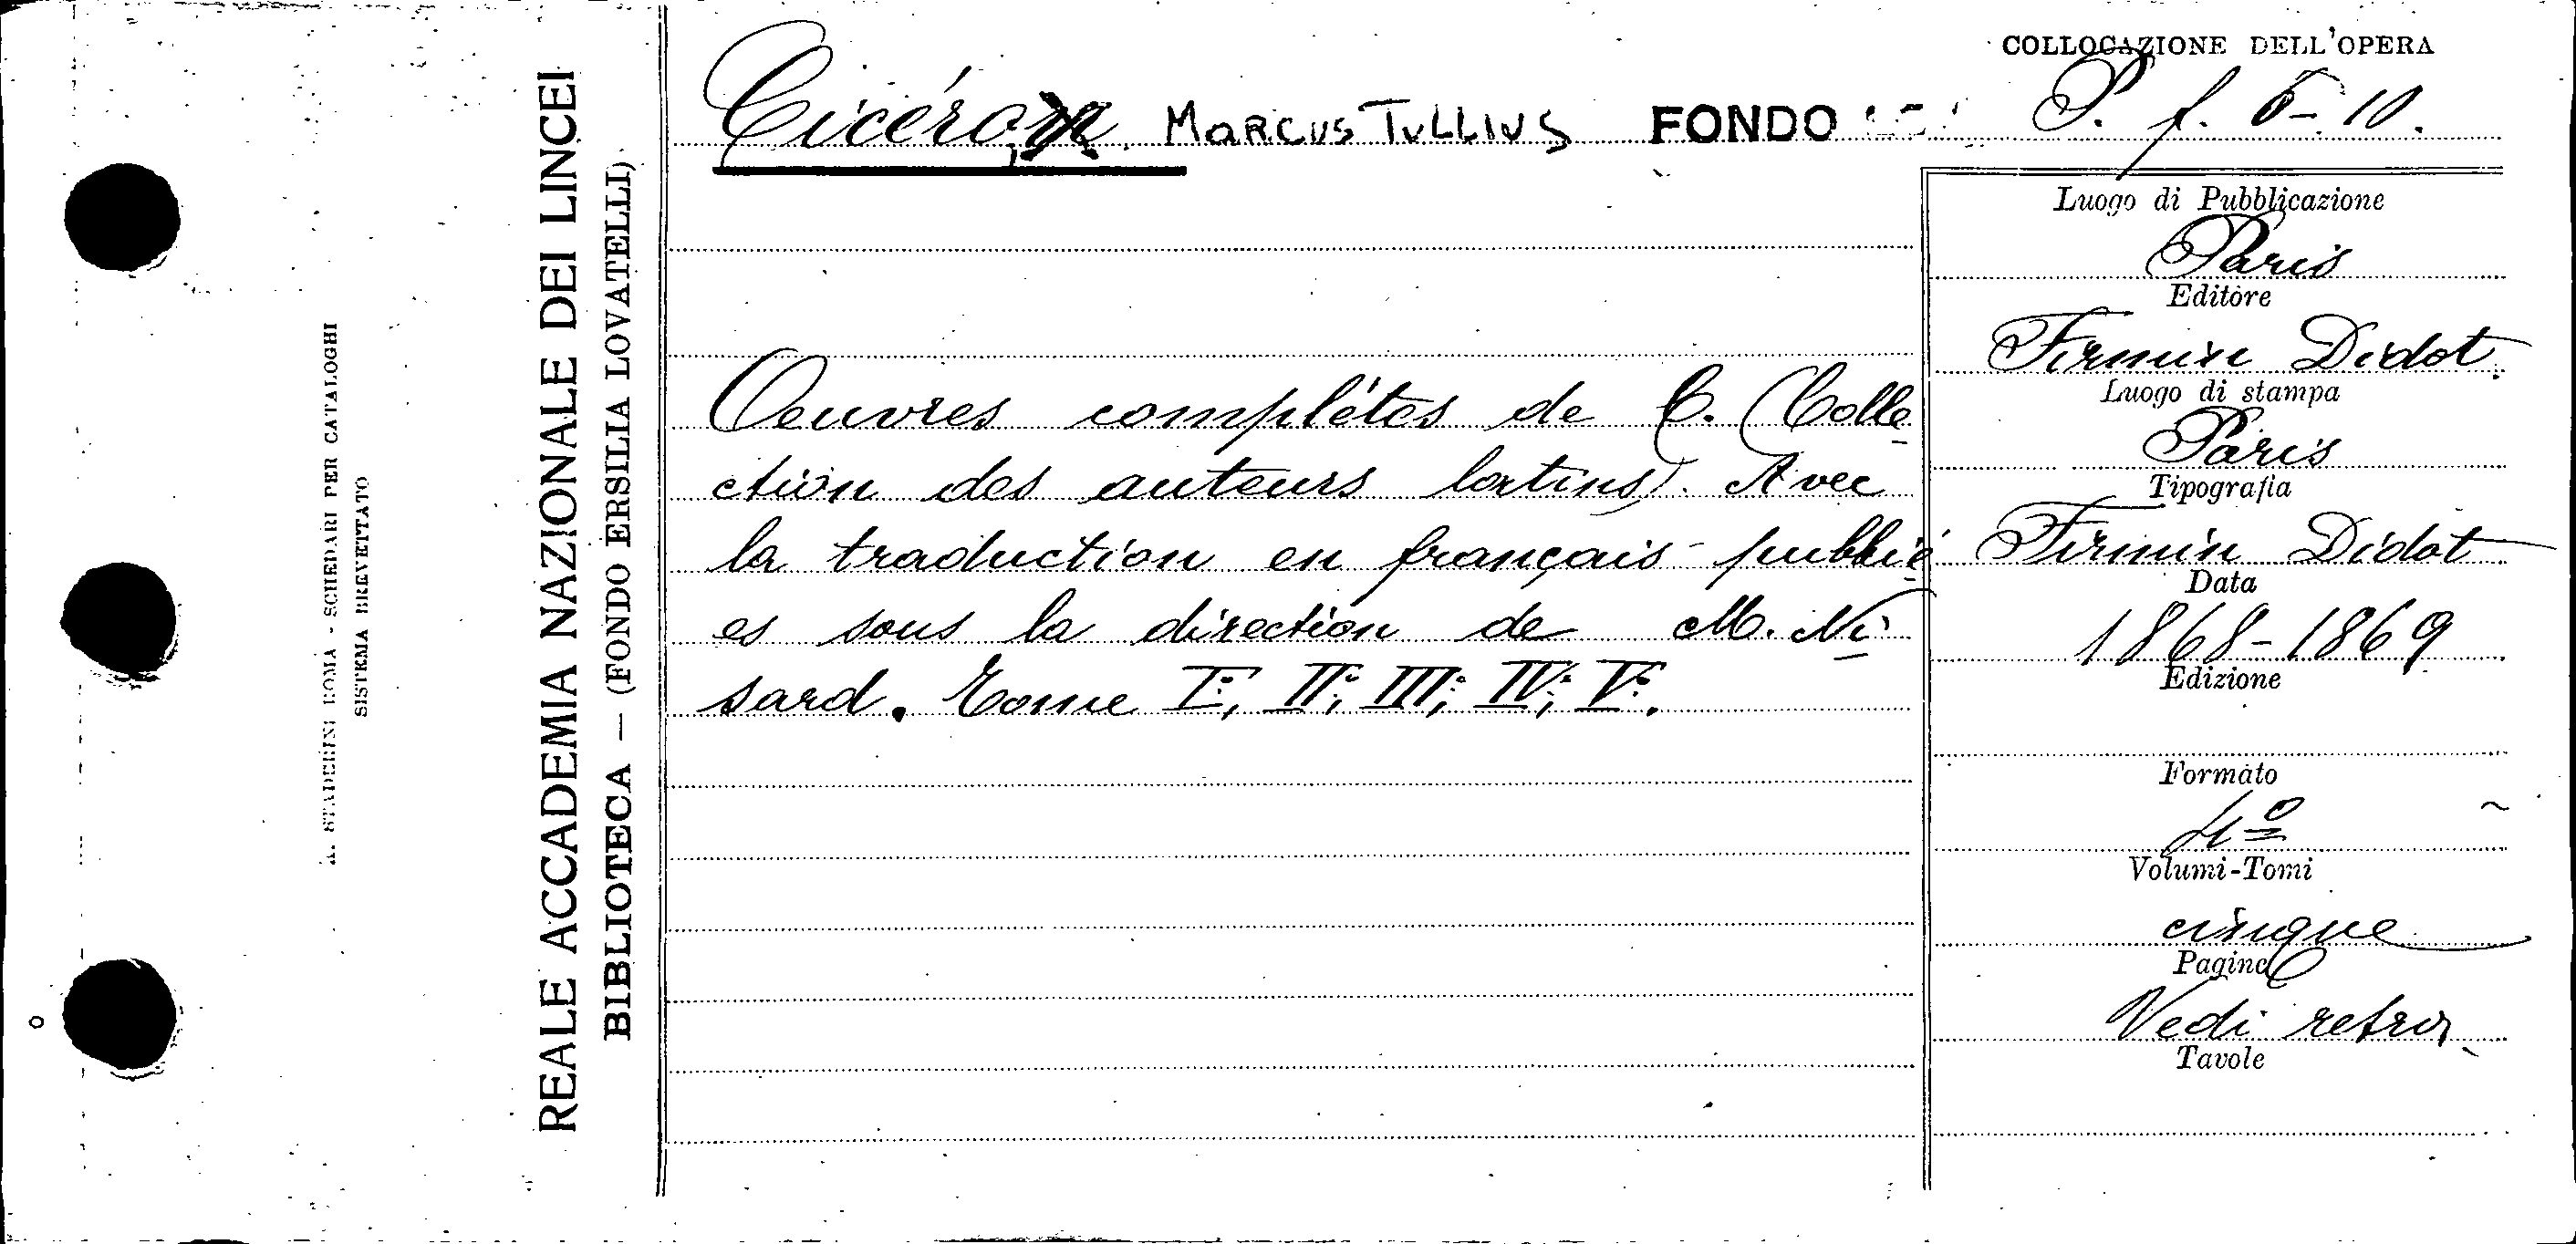 COLLOCAZIONE DELL'OPERA
Cicéro, MARCUS TULLIUS FONDO P. f. 6-10.
Oeuvres complétes de C. (Colle
ction des auteurs latins). Avec
la traduction en français - publié
es sous la direction de M. Ni
sard. Tome I°; II°; III°; IV°; V°.
Luogo di Pubblicazione
Paris
Editore
Firmin Didot
Luogo di stampa
Paris
Tipografia
Firmin Didot
Data
1868-1869
Edizione
Formato
4°
Volumi-Tomi
cinque
Pagine
Vedi retro
Tavole
REALE ACCADEMIA NAZIONALE DEI LINCEI
BIBLIOTECA — (FONDO ERSILIA LOVATELLI)
STADERINI ROMA - SCHEDARI PER CATALOGHI
SISTEMA BREVETTATO